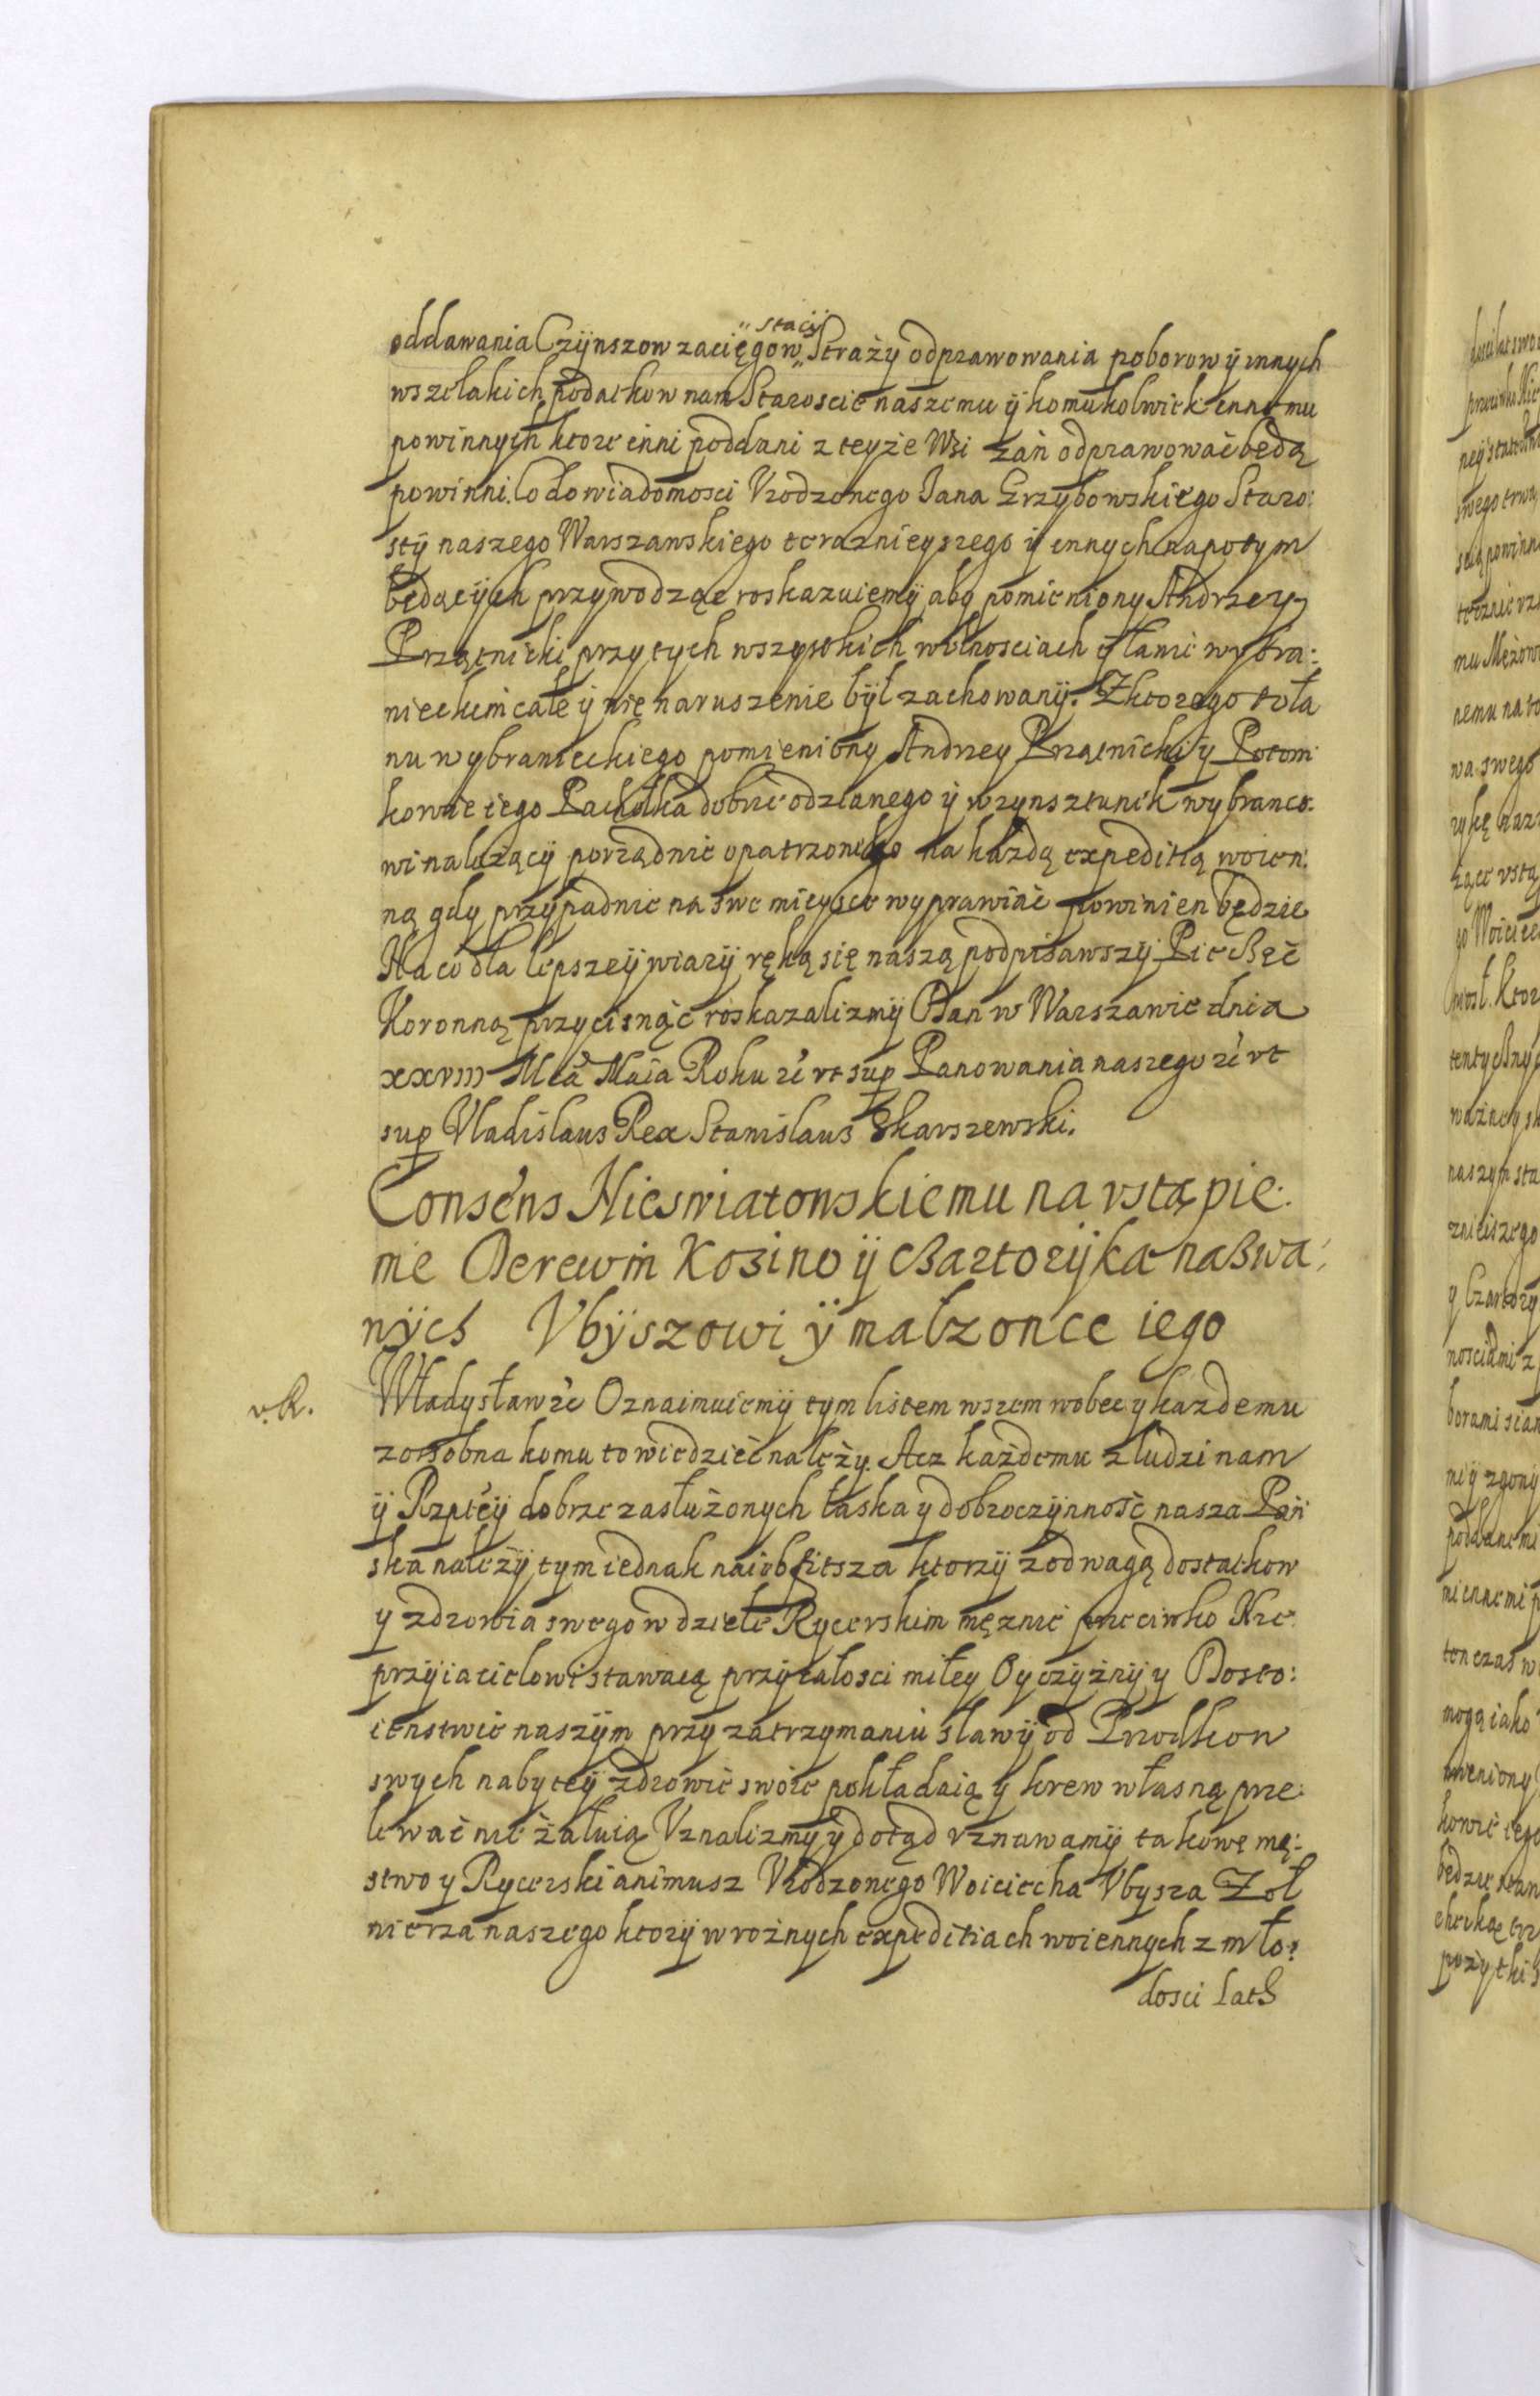 oddawania Czÿnszow zacięgow "stacÿ" Straży odprawowania poborow ÿ innych
wszelakich podatkow nam Staroscie naszemu ÿ komukolwiek innemu
powinnych ktore inni poddani z teyże Wsi zań odprawować będą
powinni. Co do wiadomosci Vrodzonego Jana Grzybowskiego Staro:
stÿ naszego Warszawskiego teraznieyszego ÿ innych napotym
będącÿch przywodząc roskazuiemÿ aby pomieniony Andrzey
Przątnicki przy tych wszystkich wolnosciach ÿ łanie wybra:
nieckim całe ÿ nie naruszenie bÿł zachowanÿ. Z ktorego to ła
nu wybranieckiego pomieniony Andrzey Przątnicki ÿ Potom
kowie iego Pachołka dobrze odzianego ÿ w rynsztunek wybranco:
wi nalużącÿ porządnie opatrzonego na każdą expeditią woien:
ną gdy przypadnie na swe mieysce wyprawiać powinien będzie
Na co dla lepszeÿ wiarÿ ręką się naszą podpisawszÿ Pieczęć
Koronną przycisnąć roskazalizmÿ Dan w Warszawie dnia
xxviii Mca Maia Roku &c vt sup Panowania naszego &c vt
sup Vladislaus Rex Stanislaus Skarszewski.
Consens Nieswiatowskiemu na vstąpie:
nie Derewiń Kozino ÿ Czartorÿka nazwa:
nÿch Vbÿszowi ÿ małzonce iego
v. R.
Władysław &c Oznaimuiemÿ tym listem wszem wobec y każdemu
zosobna komu to wiedzieć należy. Acz każdemu z ludzi nam
ÿ Rzptéÿ dobrze zasłużonych łaska y dobroczÿnność nasza Pań
ska należÿ, tym iednak naiobfitsza ktorzÿ z odwagą dostatkow
y zdrowia swego w dziele Rycerskim mężnie przeciwko Nie
przÿiacielowi stawaią przÿ całosci miłey Oyczÿznÿ y Dosto:
ienstwie naszÿm przy zatrzymaniu sławÿ od Przodkow
swych nabyteÿ zdrowie swoie pokładaią y krew własną prze:
lewać nie żałuią Vznalizmy ÿ dotąd vznawamÿ takowe mę:
stwo y Rycerski animusz Vrodzonego Woiciecha Vbysza Zoł
nierza naszego ktorÿ w rożnych expeditiach woiennych z mło:
dosci lath